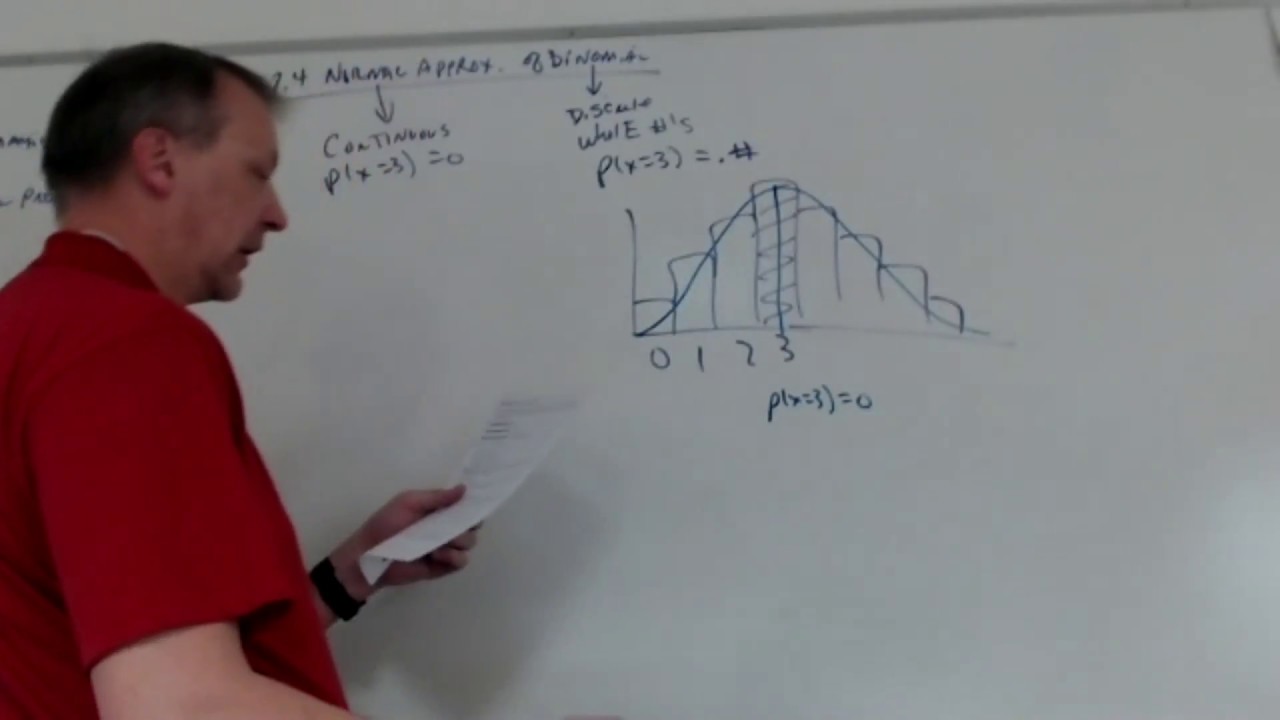 .4 Normal Approx. of Binomial
Continuous
p(x=3) = 0
Discrete
whole #'s
p(x=3) = .#
0 1 2 3
p(x=3) = 0